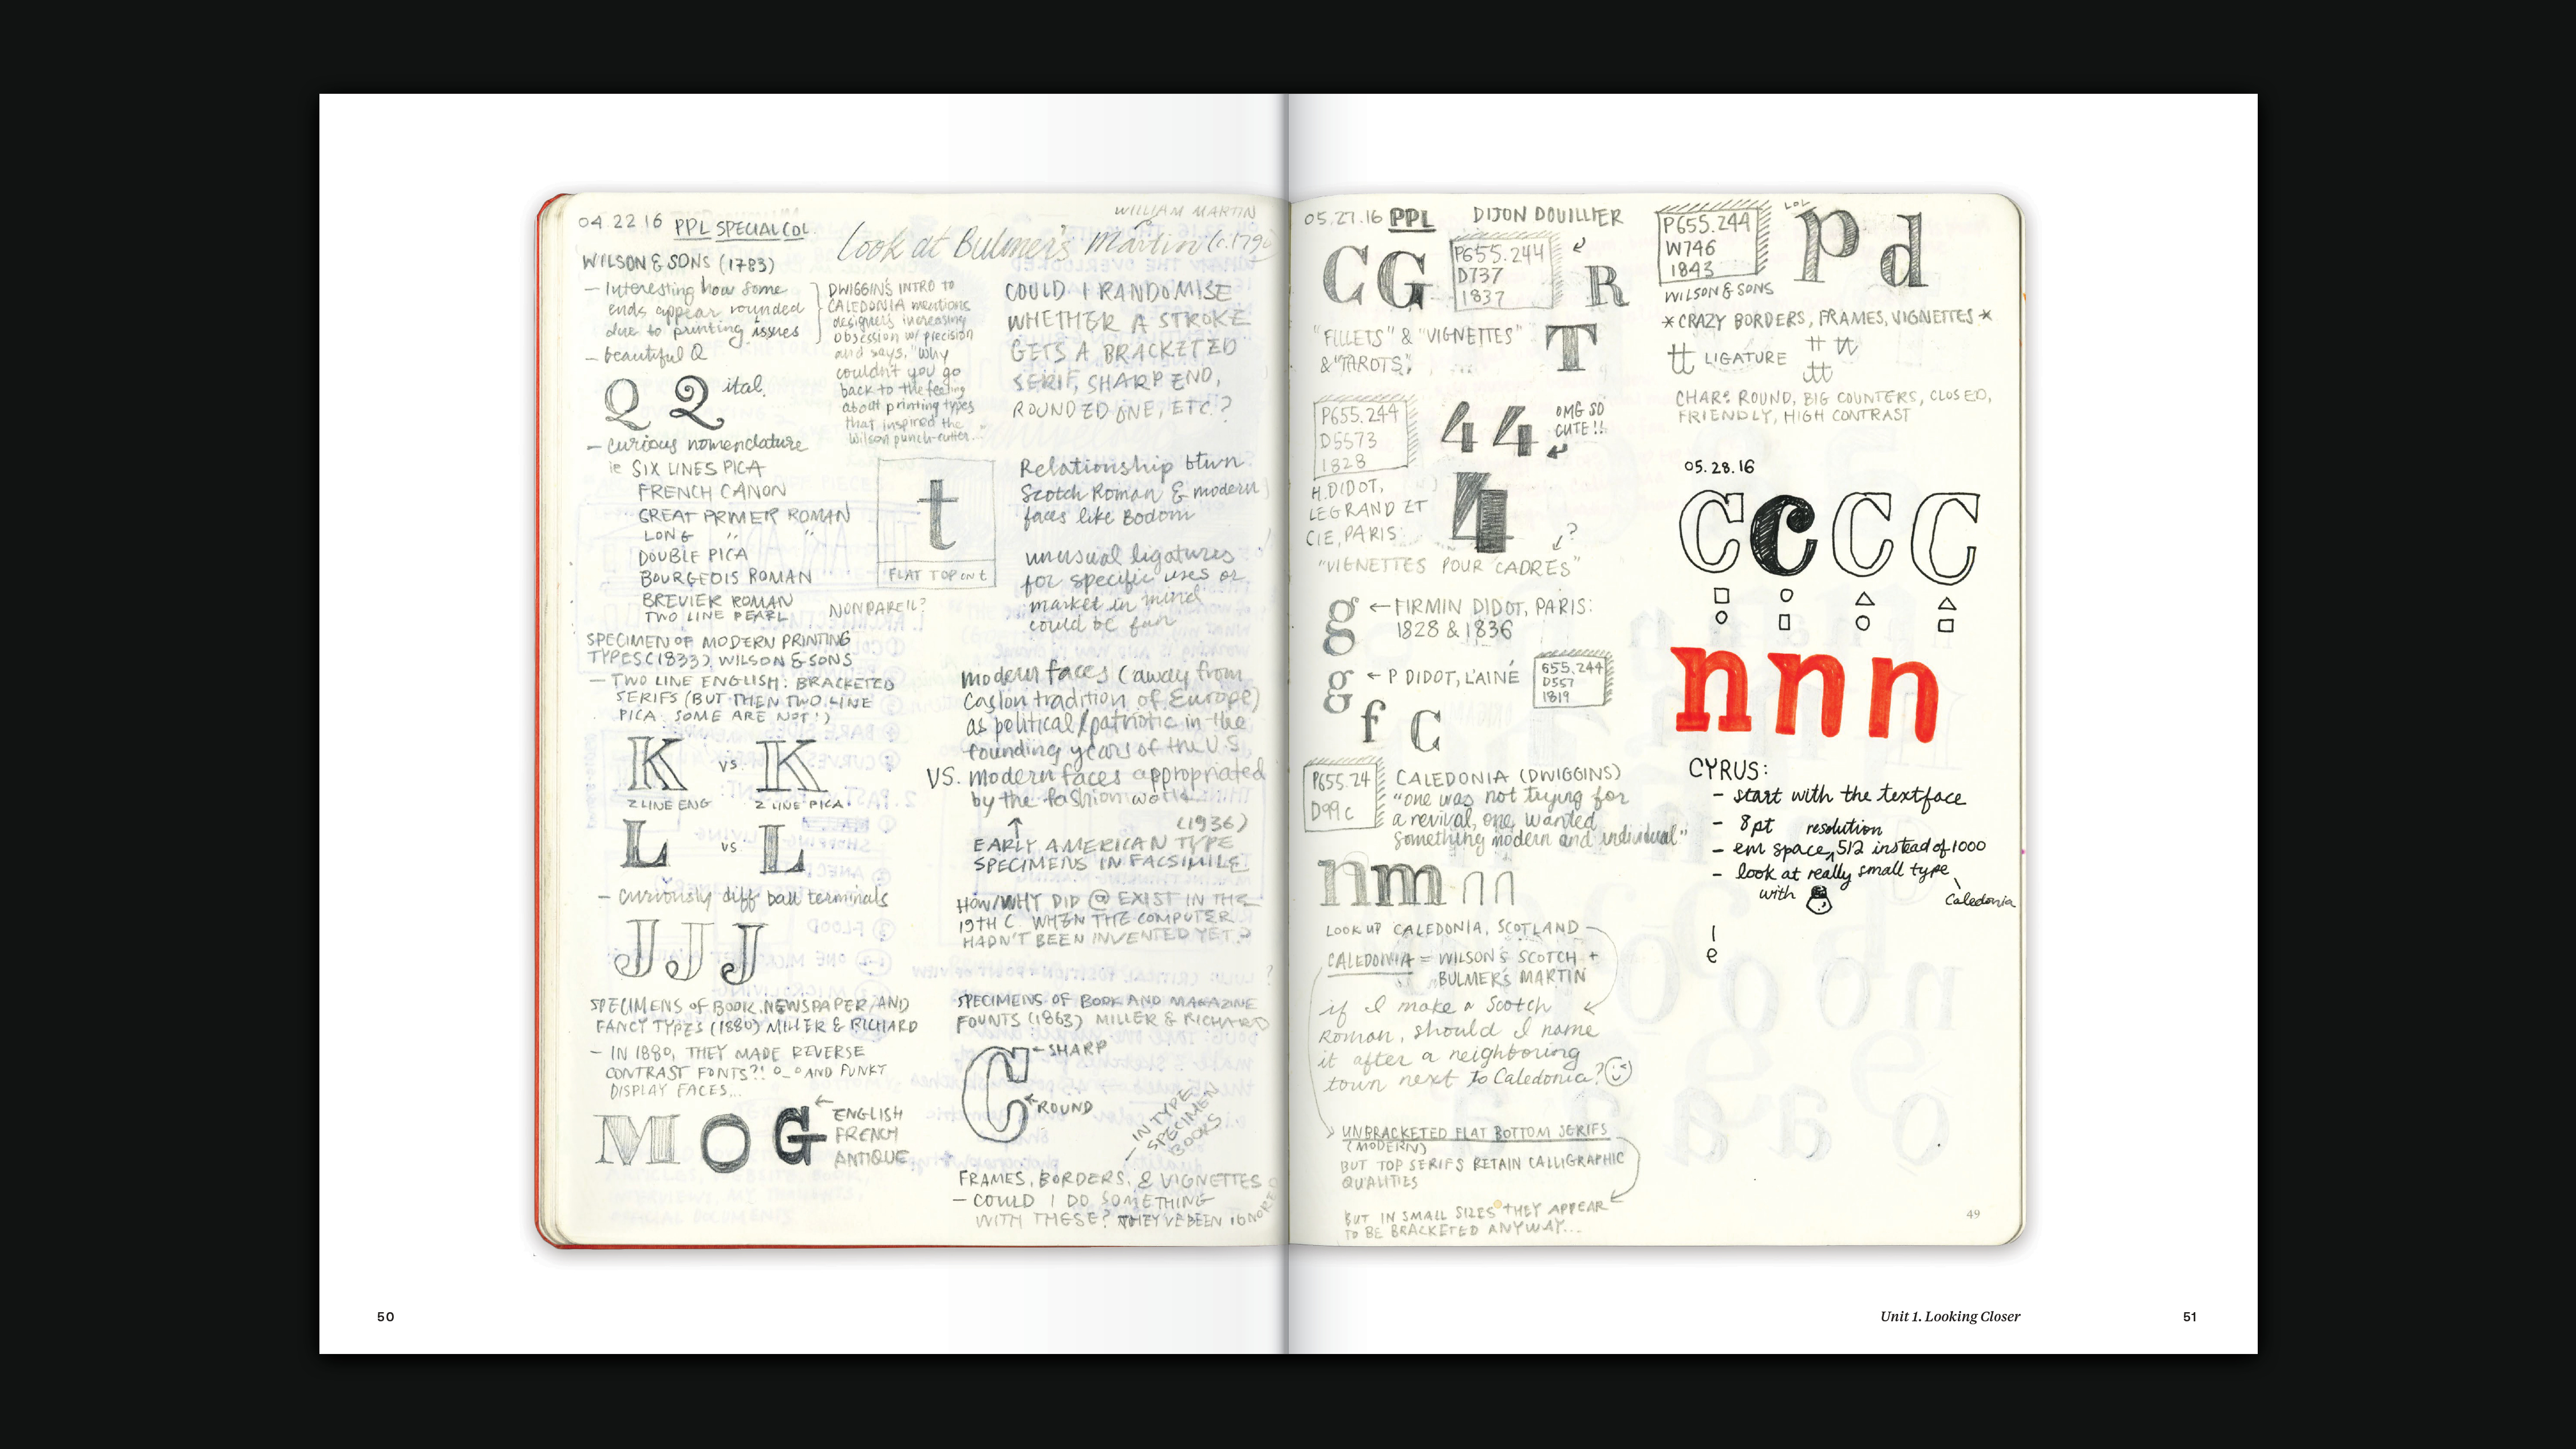 04.22.16 PPL SPECIAL COL.
WILLIAM MARTIN
Look at Bulmer's Martin (c.1790)
WILSON & SONS (1783)
– Interesting how some
ends appear rounded
due to printing issues
– beautiful Q
Q Q ital.
– curious nomenclature
ie SIX LINES PICA
FRENCH CANON
GREAT PRIMER ROMAN
LONG " "
DOUBLE PICA
BOURGEOIS ROMAN
BREVIER ROMAN
TWO LINE PEARL
NONPAREIL?
DWIGGIN'S INTRO TO
CALEDONIA mentions
designers increasing
obsession w/ precision
and says, "Why
couldn't you go
back to the feeling
about printing types
that inspired the
Wilson punch-cutter..."
t
FLAT TOP on t
SPECIMEN OF MODERN PRINTING
TYPES (1833) WILSON & SONS
– TWO LINE ENGLISH: BRACKETED
SERIFS (BUT THEN TWO LINE
PICA: SOME ARE NOT!)
K vs. K
2 LINE ENG 2 LINE PICA
L vs L
– curiously diff ball terminals
J J J
SPECIMENS OF BOOK, NEWSPAPER, AND
FANCY TYPES (1880) MILLER & RICHARD
– IN 1880, THEY MADE REVERSE
CONTRAST FONTS?! o_o AND FUNKY
DISPLAY FACES...
M O G
← ENGLISH
FRENCH
ANTIQUE
COULD I RANDOMISE
WHETHER A STROKE
GETS A BRACKETED
SERIF, SHARP END,
ROUNDED ONE, ETC.?
Relationship btwn
Scotch Roman & modern
faces like Bodoni
unusual ligatures
for specific uses or
market in mind
could be fun
modern faces (away from
Caslon tradition of Europe)
as political/patriotic in the
founding years of the U.S
VS. modern faces appropriated
by the fashion world
↑ (1936)
EARLY AMERICAN TYPE
SPECIMENS IN FACSIMILE
HOW/WHY DID @ EXIST IN THE
19TH C. WHEN THE COMPUTER
HADN'T BEEN INVENTED YET?
SPECIMENS OF BOOK AND MAGAZINE
FOUNTS (1863) MILLER & RICHARD
C
← SHARP
ROUND
– IN TYPE
SPECIMEN
BOOKS
FRAMES, BORDERS, & VIGNETTES
– COULD I DO SOMETHING
WITH THESE? THEY'VE BEEN IGNORED
05.27.16 PPL DIJON DOUILLIER
C G
P655.244
D737
1837
R
"FILLETS" & "VIGNETTES"
& "TAROTS"
T
P655.244
D5573
1828
4 4
OMG SO
CUTE!!
4
H.DIDOT,
LEGRAND ET
CIE, PARIS
?
"VIGNETTES POUR CADRES"
g ← FIRMIN DIDOT, PARIS:
1828 & 1836
g ← P DIDOT, L'AINÉ
655.244
D557
1819
f C
P655.24
D99c
CALEDONIA (DWIGGINS)
"one was not trying for
a revival, one wanted
something modern and individual"
n m n n
LOOK UP CALEDONIA, SCOTLAND
CALEDONIA = WILSON'S SCOTCH +
BULMER'S MARTIN
if I make a Scotch
Roman, should I name
it after a neighboring
town next to Caledonia?
UNBRACKETED FLAT BOTTOM SERIFS
(MODERN)
BUT TOP SERIFS RETAIN CALLIGRAPHIC
QUALITIES
BUT IN SMALL SIZES THEY APPEAR
TO BE BRACKETED ANYWAY...
P655.244
W746
1843
WILSON & SONS
LOL
p d
* CRAZY BORDERS, FRAMES, VIGNETTES *
tt LIGATURE tt tt
tt
CHARS ROUND, BIG COUNTERS, CLOSED,
FRIENDLY, HIGH CONTRAST
05.28.16
C C C C
n n n
CYRUS:
– start with the textface
– 8pt resolution
– em space, 512 instead of 1000
– look at really small type
with
Caledonia
l
e
49
50
Unit 1. Looking Closer
51